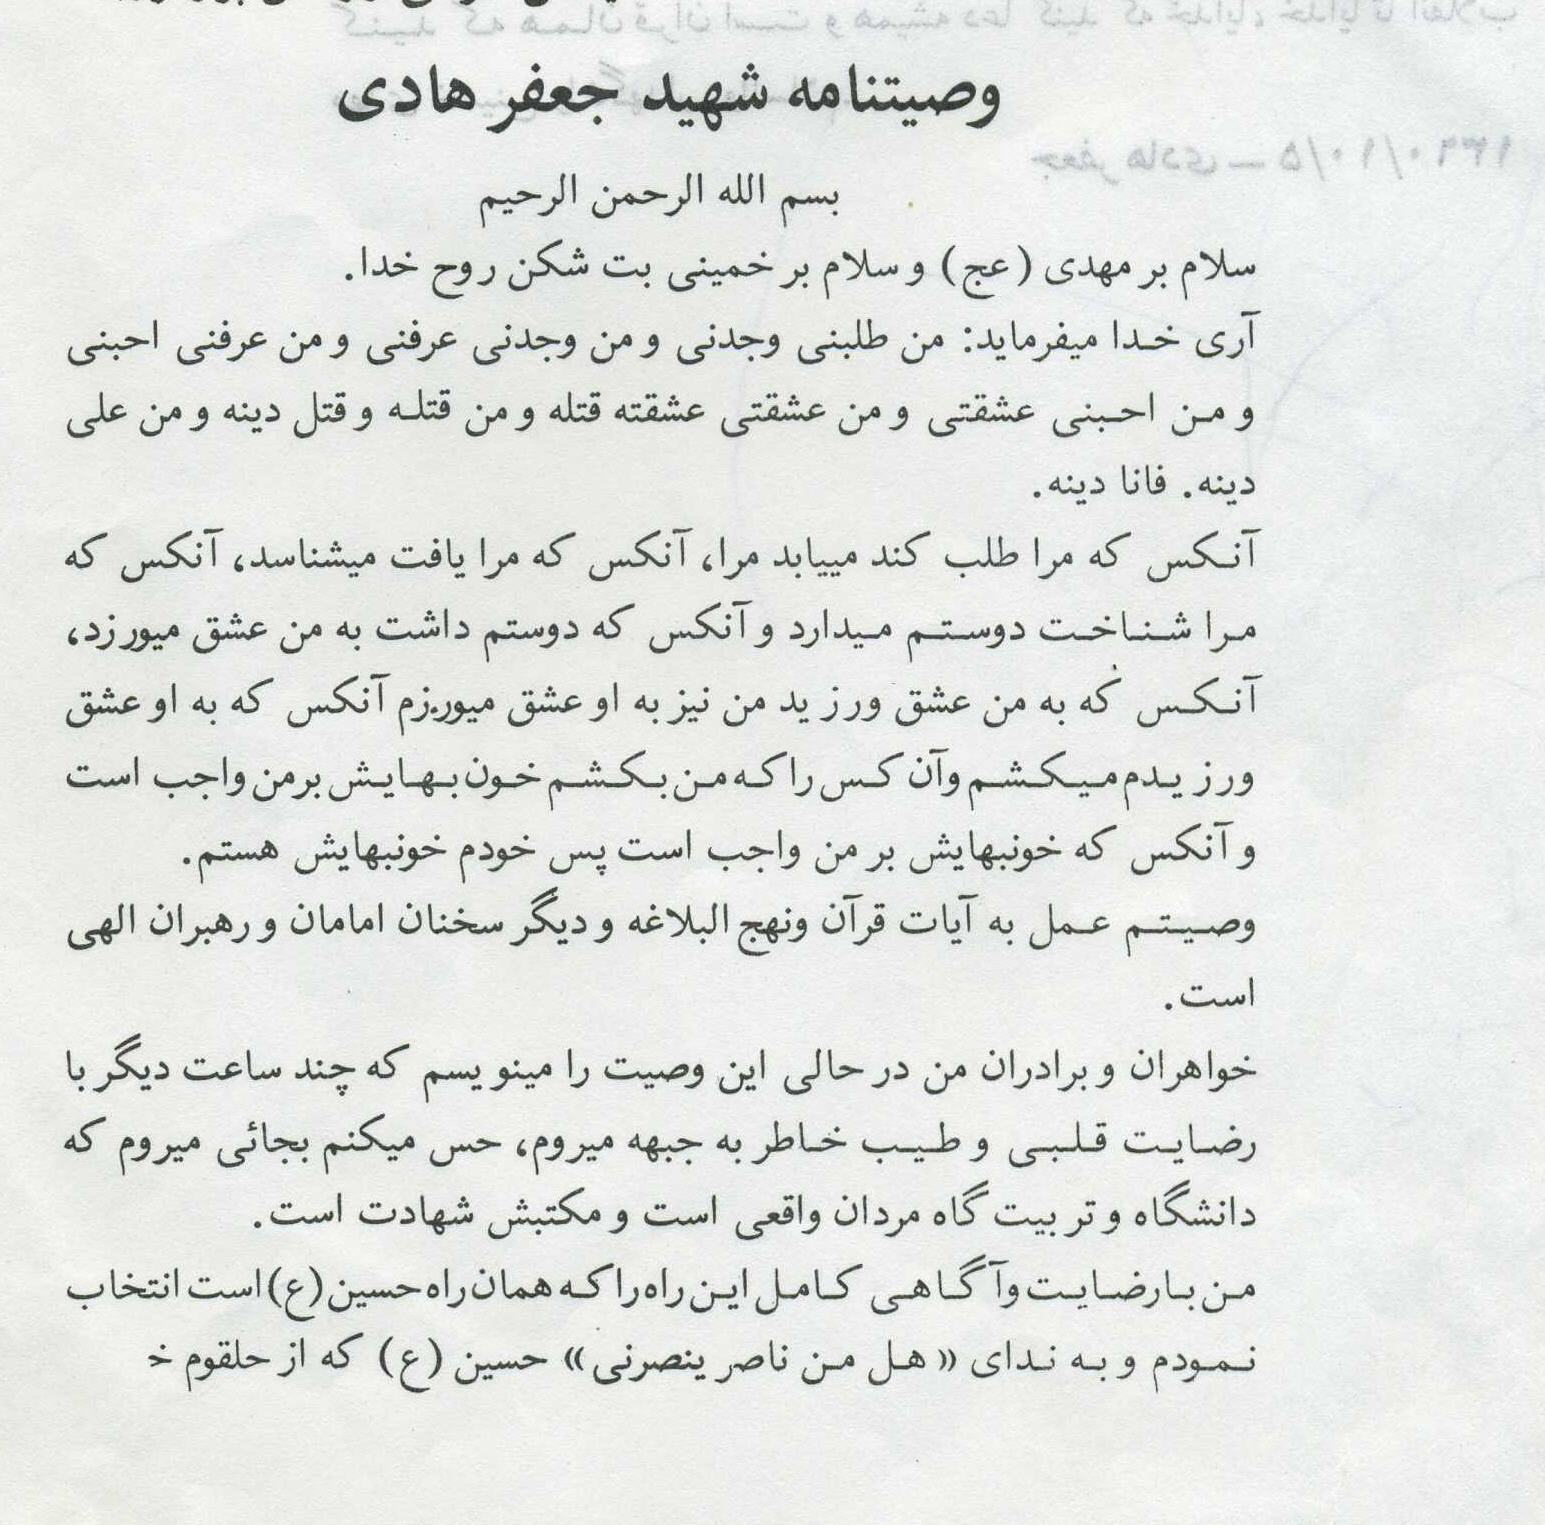 وصیتنامه شهید جعفر هادی
بسم الله الرحمن الرحیم
سلام بر مهدی (عج) و سلام بر خمینی بت شکن روح خدا.
آری خدا میفرماید: من طلبنی وجدنی و من وجدنی عرفنی و من عرفنی احبنی
و من احبنی عشقتی و من عشقتی عشقته قتله و من قتله و قتل دینه و من علی
دینه. فانا دینه.
آنکس که مرا طلب کند مییابد مرا، آنکس که مرا یافت میشناسد، آنکس که
مرا شناخت دوستم میدارد و آنکس که دوستم داشت به من عشق میورزد،
آنکس که به من عشق ورزید من نیز به او عشق میورزم آنکس که به او عشق
ورزیدم میکشم وآن کس را که من بکشم خون بهایش برمن واجب است
و آنکس که خونبهایش بر من واجب است پس خودم خونبهایش هستم.
وصیتم عمل به آیات قرآن ونهج البلاغه و دیگر سخنان امامان و رهبران الهی
است.
خواهران و برادران من در حالی این وصیت را مینویسم که چند ساعت دیگر با
رضایت قلبی و طیب خاطر به جبهه میروم، حس میکنم بجائی میروم که
دانشگاه و تربیت گاه مردان واقعی است و مکتبش شهادت است.
من با رضایت وآگاهی کامل این راه را که همان راه حسین (ع) است انتخاب
نمودم و به ندای «هل من ناصر ینصرنی» حسین (ع) که از حلقوم خ